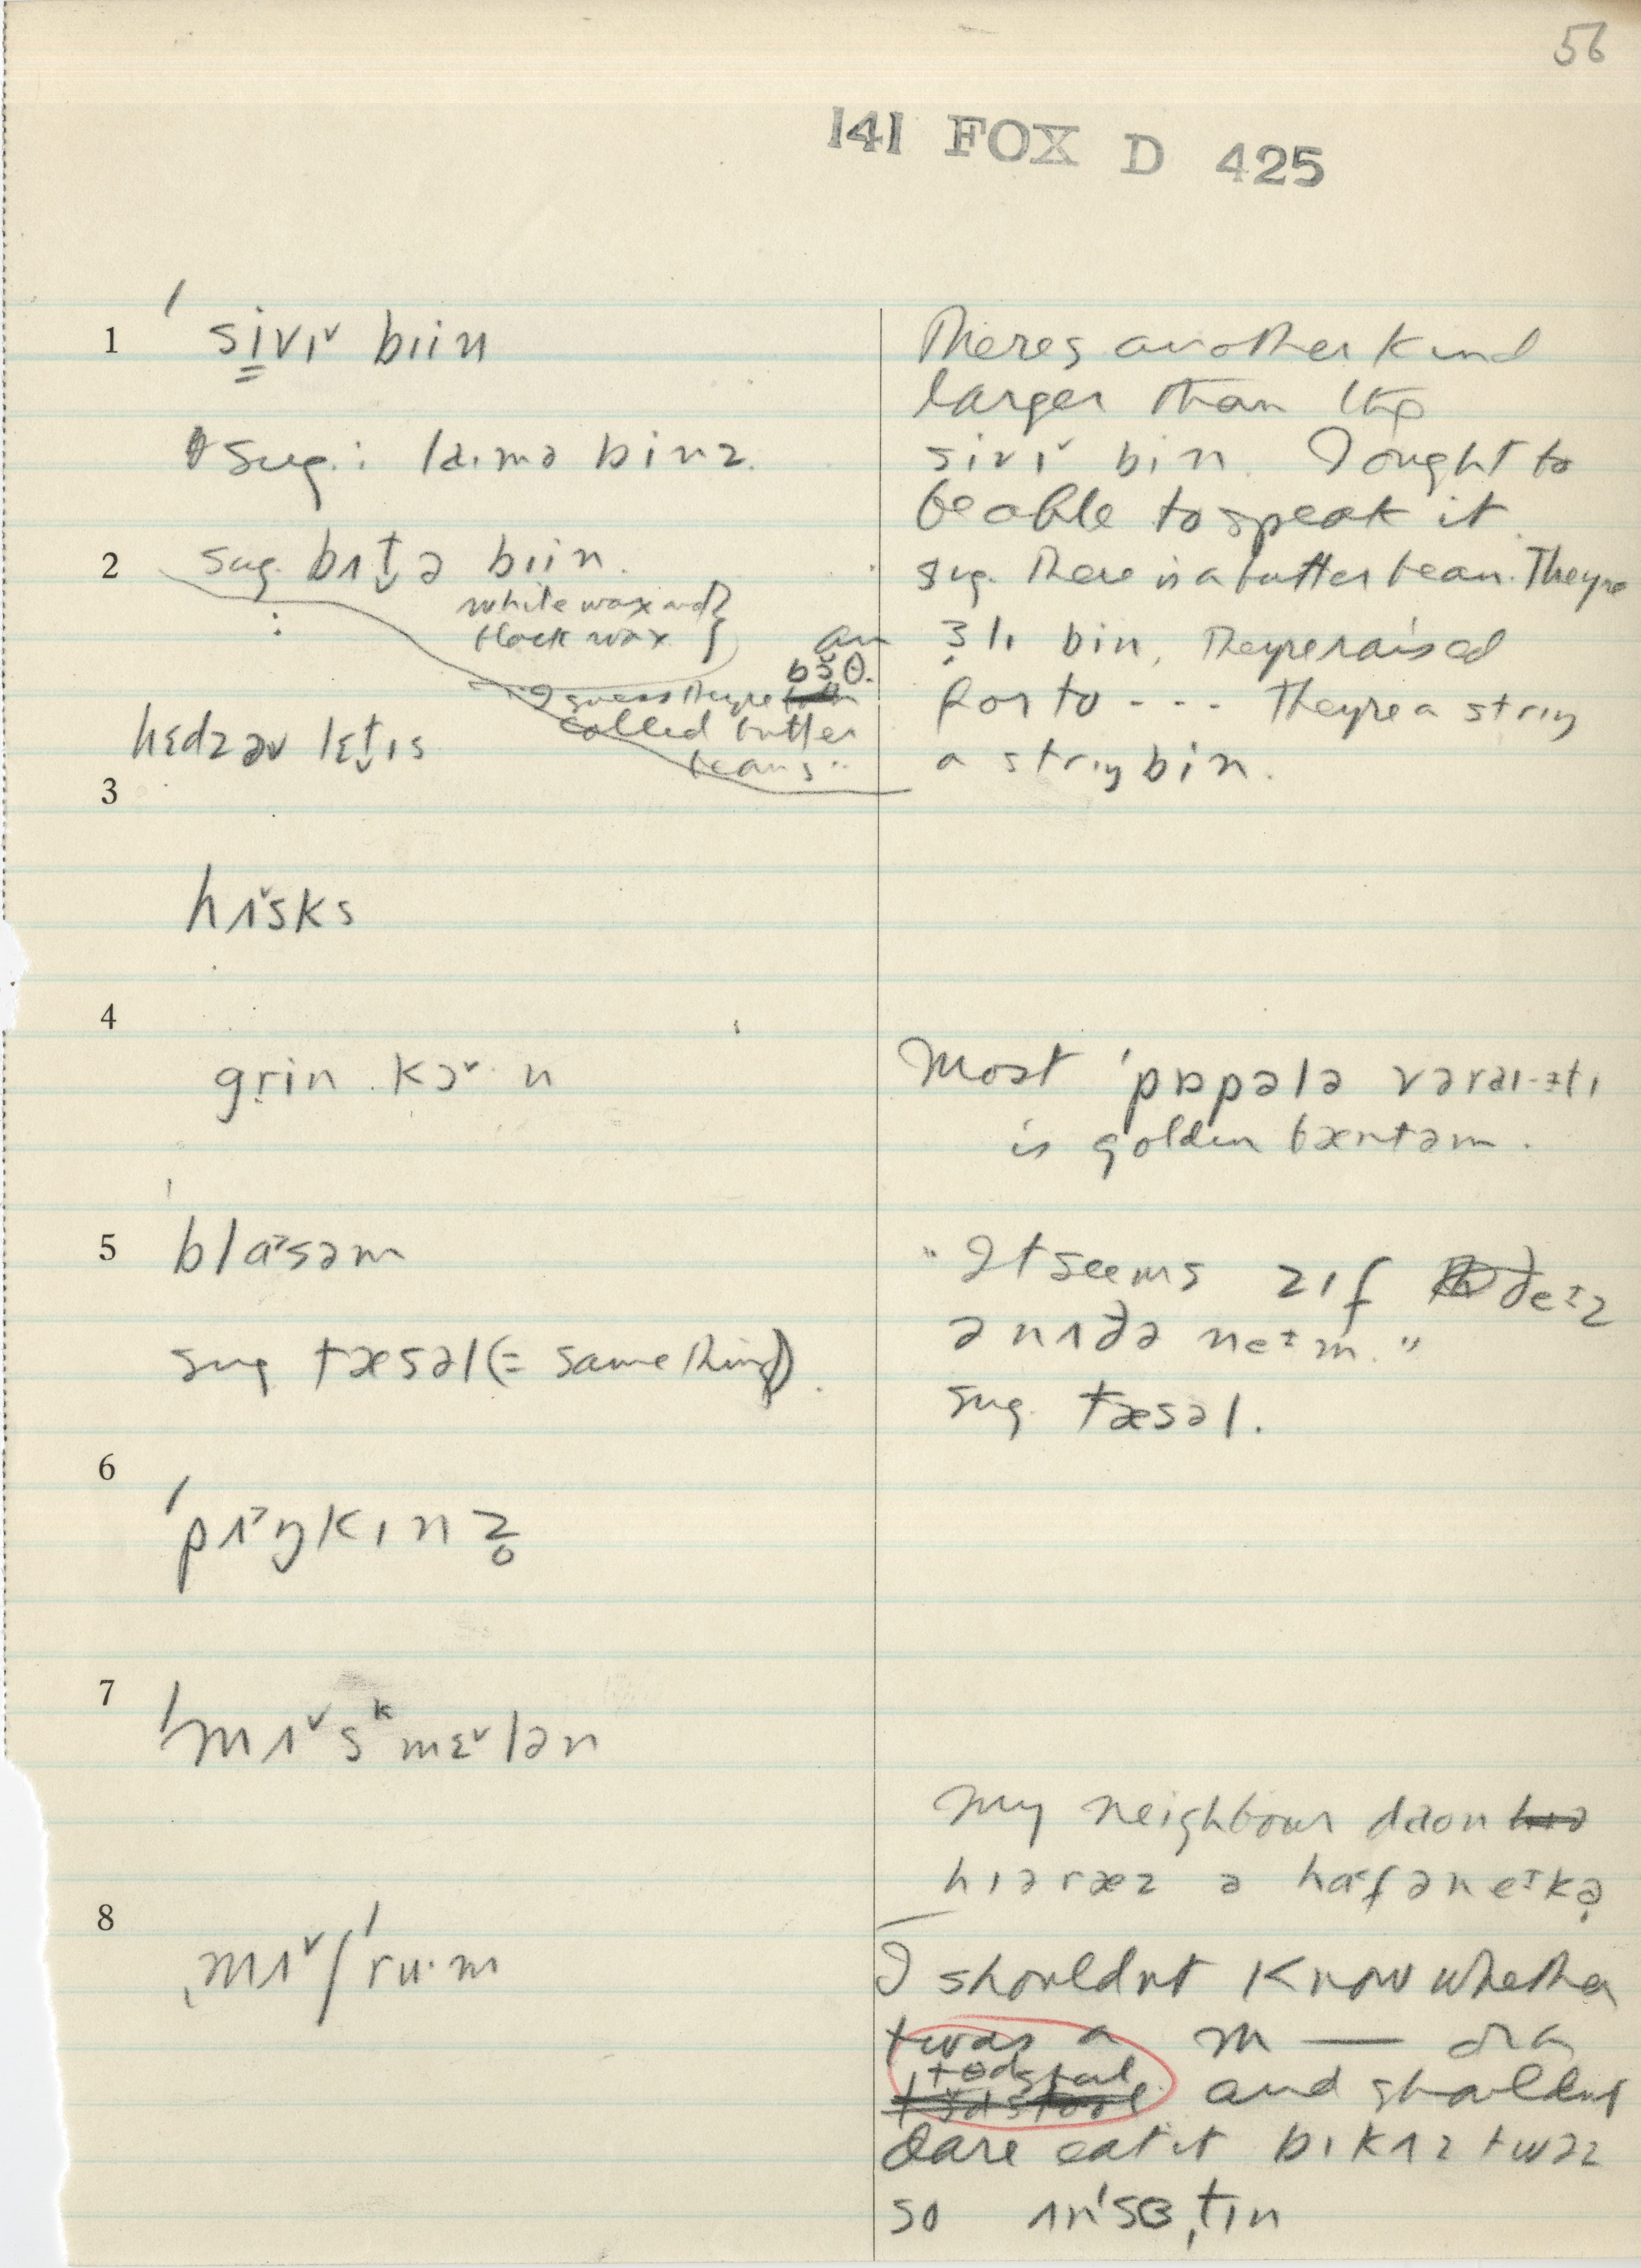 56
141 FOX D 425
1 ˈsi̳vɪ˅ biin
sug.: laˑmə binz.
2 sug. bʌt̬ə biin.
white wax and }
black wax }
I guess theyre boθ.
called butter
beans..
hɛdz əv lɛt̬ɪs
3
hʌ˅sks
4
grin kɔ˅ˑn
5 blɑ˃səm
sug tæsəl (= same thing).
6
ˈpʌ˃ŋkɪnz̥
7
ˈmʌ˅sᵏmɛ˅lən
8
ˌmʌ˅ʃˈruˑm
Theres another kind
larger than the
sivɪ˅ bin. I ought to
be able to speak it.
sug. There is a butter bean. Theyre
an ɜ̣lɪ bin, Theyre raised
for to - - - Theyre a strɪŋ
a strɪŋ bin.
Most ˈpɒpələ vəraɪ-ətɪ
is golden bæntəm.
"It seems zɪf ðeɪz
ənʌðə neɪm."
sug. tæsəl.
My neighbour daon
hɪə ræz ə hɑ˂f ən eɪkə̣
I shouldnt know whether
twas a m — or a
todstul and shouldnt
dare eat it bɪkʌz twəz
so ʌnˈsɜˌtɪn